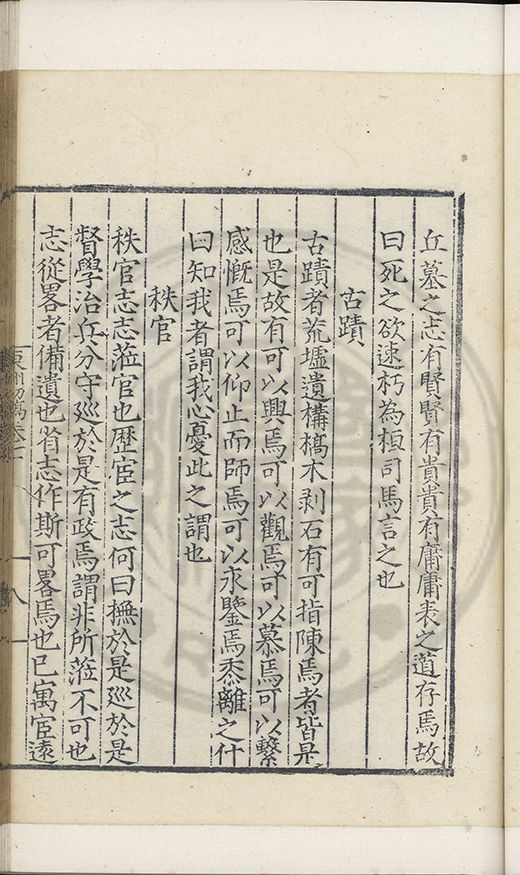 丘墓之志有賢賢有貴貴有庸庸表之道存焉故
曰死之欲速朽為桓司馬言之也
古蹟
古蹟者荒墟遺構槁木剥石有可指陳焉者皆是
也是故有可以興焉可以觀焉可以慕焉可以繫
感慨焉可以仰止而師焉可以求鑒焉黍離之什
曰知我者謂我心憂此之謂也
秩官
秩官志志蒞官也歷宦之志何曰撫於是廵於是
督學治兵分守廵於是有政焉謂非所蒞不可也
志從畧者備遺也省志作斯可畧焉也已寓宦遠
八